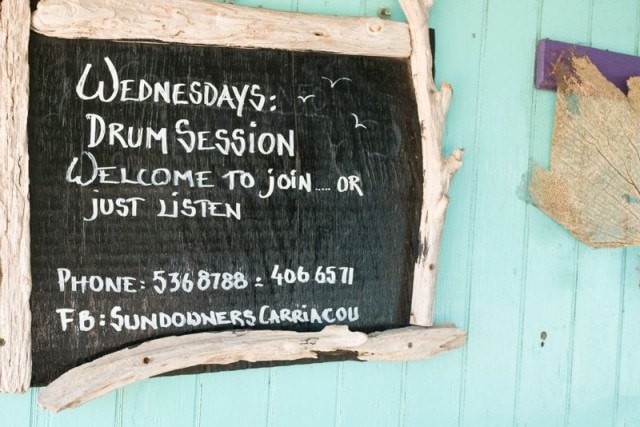 WEDNESDAYS:
DRUM SESSION
WELCOME TO JOIN.... OR
JUST LISTEN
PHONE: 5368788 - 4066571
FB: SUNDOWNERS CARRIACOU